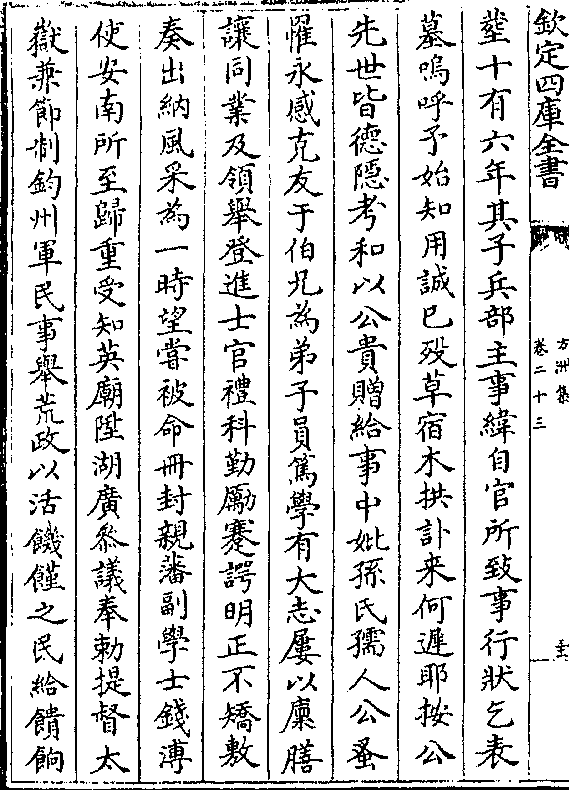 欽定四庫全書
方洲集
卷二十三
塟十有六年其子兵部主事緯自官所致事行狀乞表
墓嗚呼予始知用誠已殁草宿木拱訃来何遲耶按公
先世皆德隠考和以公貴贈給事中妣孫氏孺人公蚤
懼永感克友于伯兄為弟子員篤學有大志屢以廩膳
讓同業及領舉登進士官禮科勤勵蹇諤明正不矯敷
奏出納風采為一時望嘗被命冊封親藩副學士錢溥
使安南所至歸重受知英廟陞湖廣叅議奉勅提督太
嶽兼節制鈞州軍民事舉荒政以活饑饉之民給饋餉